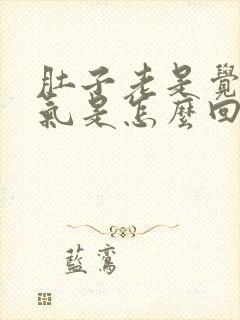 肚子老是覺
氣是怎麼回
藍鸞